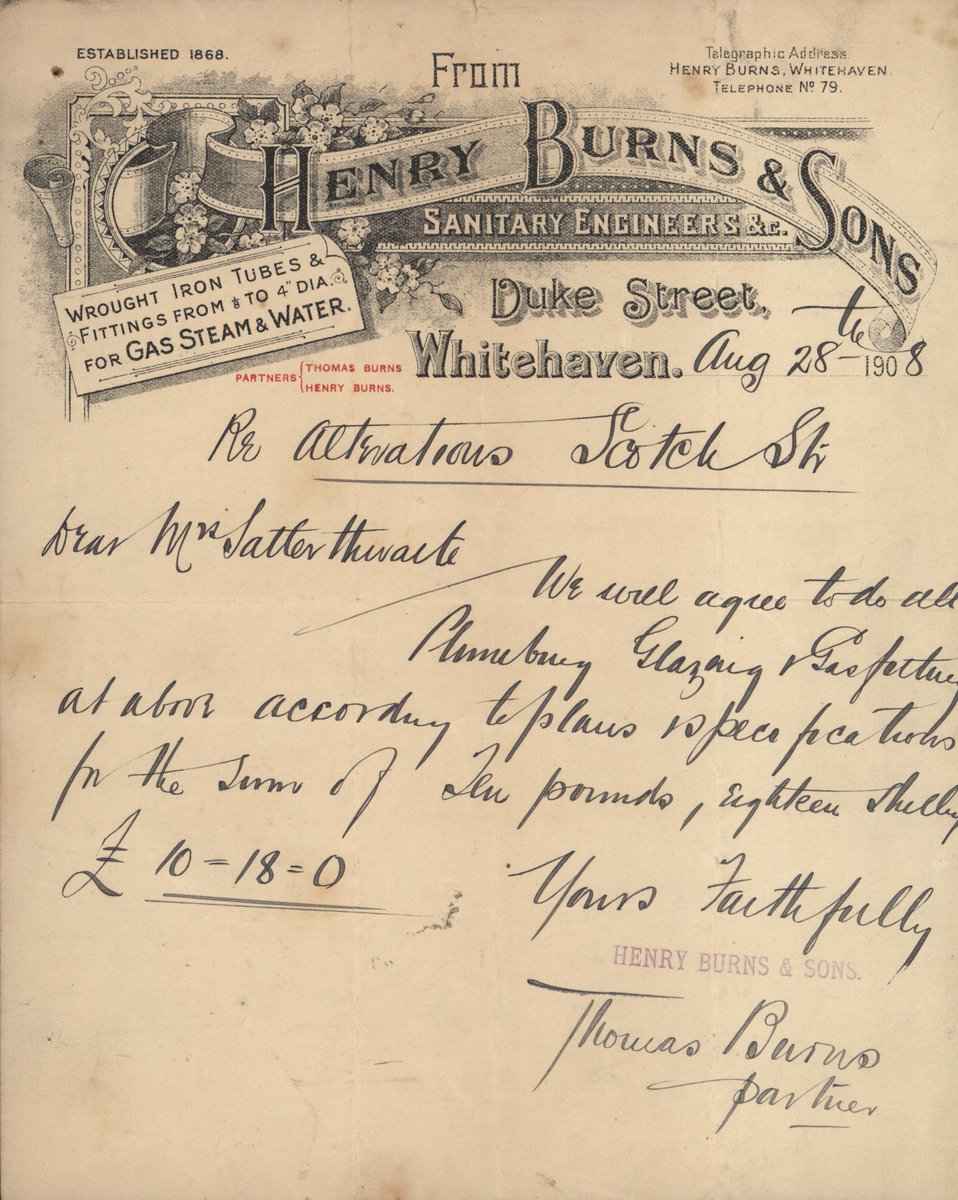 ESTABLISHED 1868.
From
Telegraphic Address
HENRY BURNS, WHITEHAVEN.
TELEPHONE No 79.
HENRY BURNS & SONS
SANITARY ENGINEERS &c.
WROUGHT IRON TUBES &
FITTINGS FROM ⅛ TO 4" DIA.
FOR GAS STEAM & WATER.
Duke Street,
Whitehaven. Aug 28th 1908
PARTNERS { THOMAS BURNS
HENRY BURNS.
Re Alterations Scotch Str
Dear Mrs Satterthwaite
We will agree to do all
Plumbing Glazing & Gasfitting
at above according to plans & specifications
for the sum of Ten pounds, eighteen shelling
£ 10 = 18 = 0
Yours Faithfully
HENRY BURNS & SONS.
Thomas Burns
partner